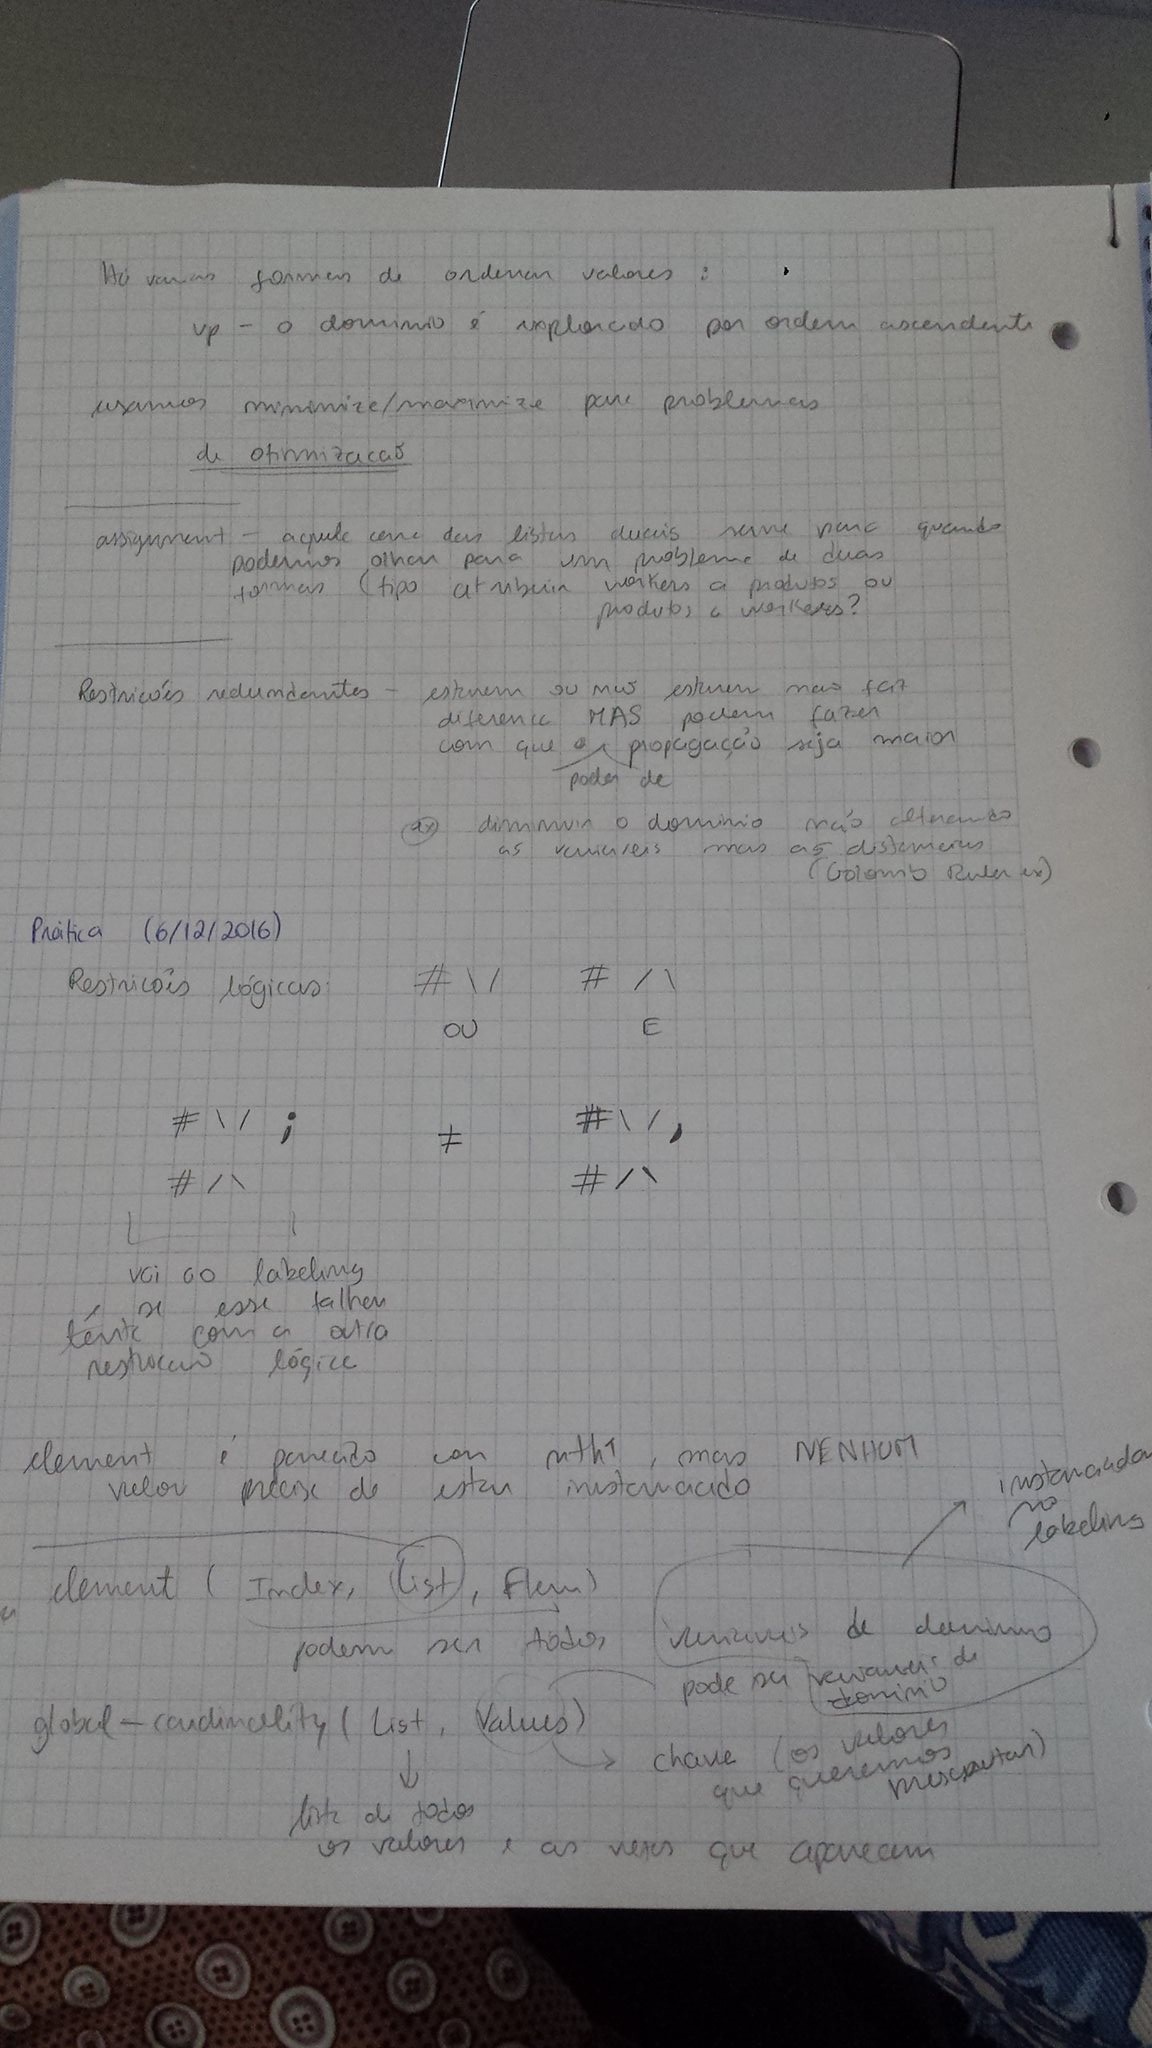 Há varias formas de ordenar valores :
up - o dominio é explorado por ordem ascendente
usamos minimize/maximize para problemas
de otimização
assignment - aquele cena das listas duais serve para quando
podemos olhar para um problema de duas
formas (tipo atribuir workers a produtos ou
produtos a workers?
Restrições redundantes - estarem ou não estarem não faz
diferença MAS podem fazer
com que o propagação seja maior
poder de
ex diminuir o dominio não alterando
as variaveis mas as distancias
(Golomb Ruler ex)
Prática (6/12/2016)
Restrições lógicas: #\/ #/\
OU E
#\/ ; ≠ #\/ ,
#/\ #/\
vai ao labeling
e se esse falhar
tenta com a outra
restrição lógica
element é parecido com nth1, mas NENHUM
valor precisa de estar instanciado
instanciadas
no
labeling
element ( Index, List, Elem)
podem ser todos variaveis de dominio
pode ser variavel de
dominio
global-cardinality ( List, Values)
chave (os valores
que queremos
lista de todos
os valores e as vezes que aparecem